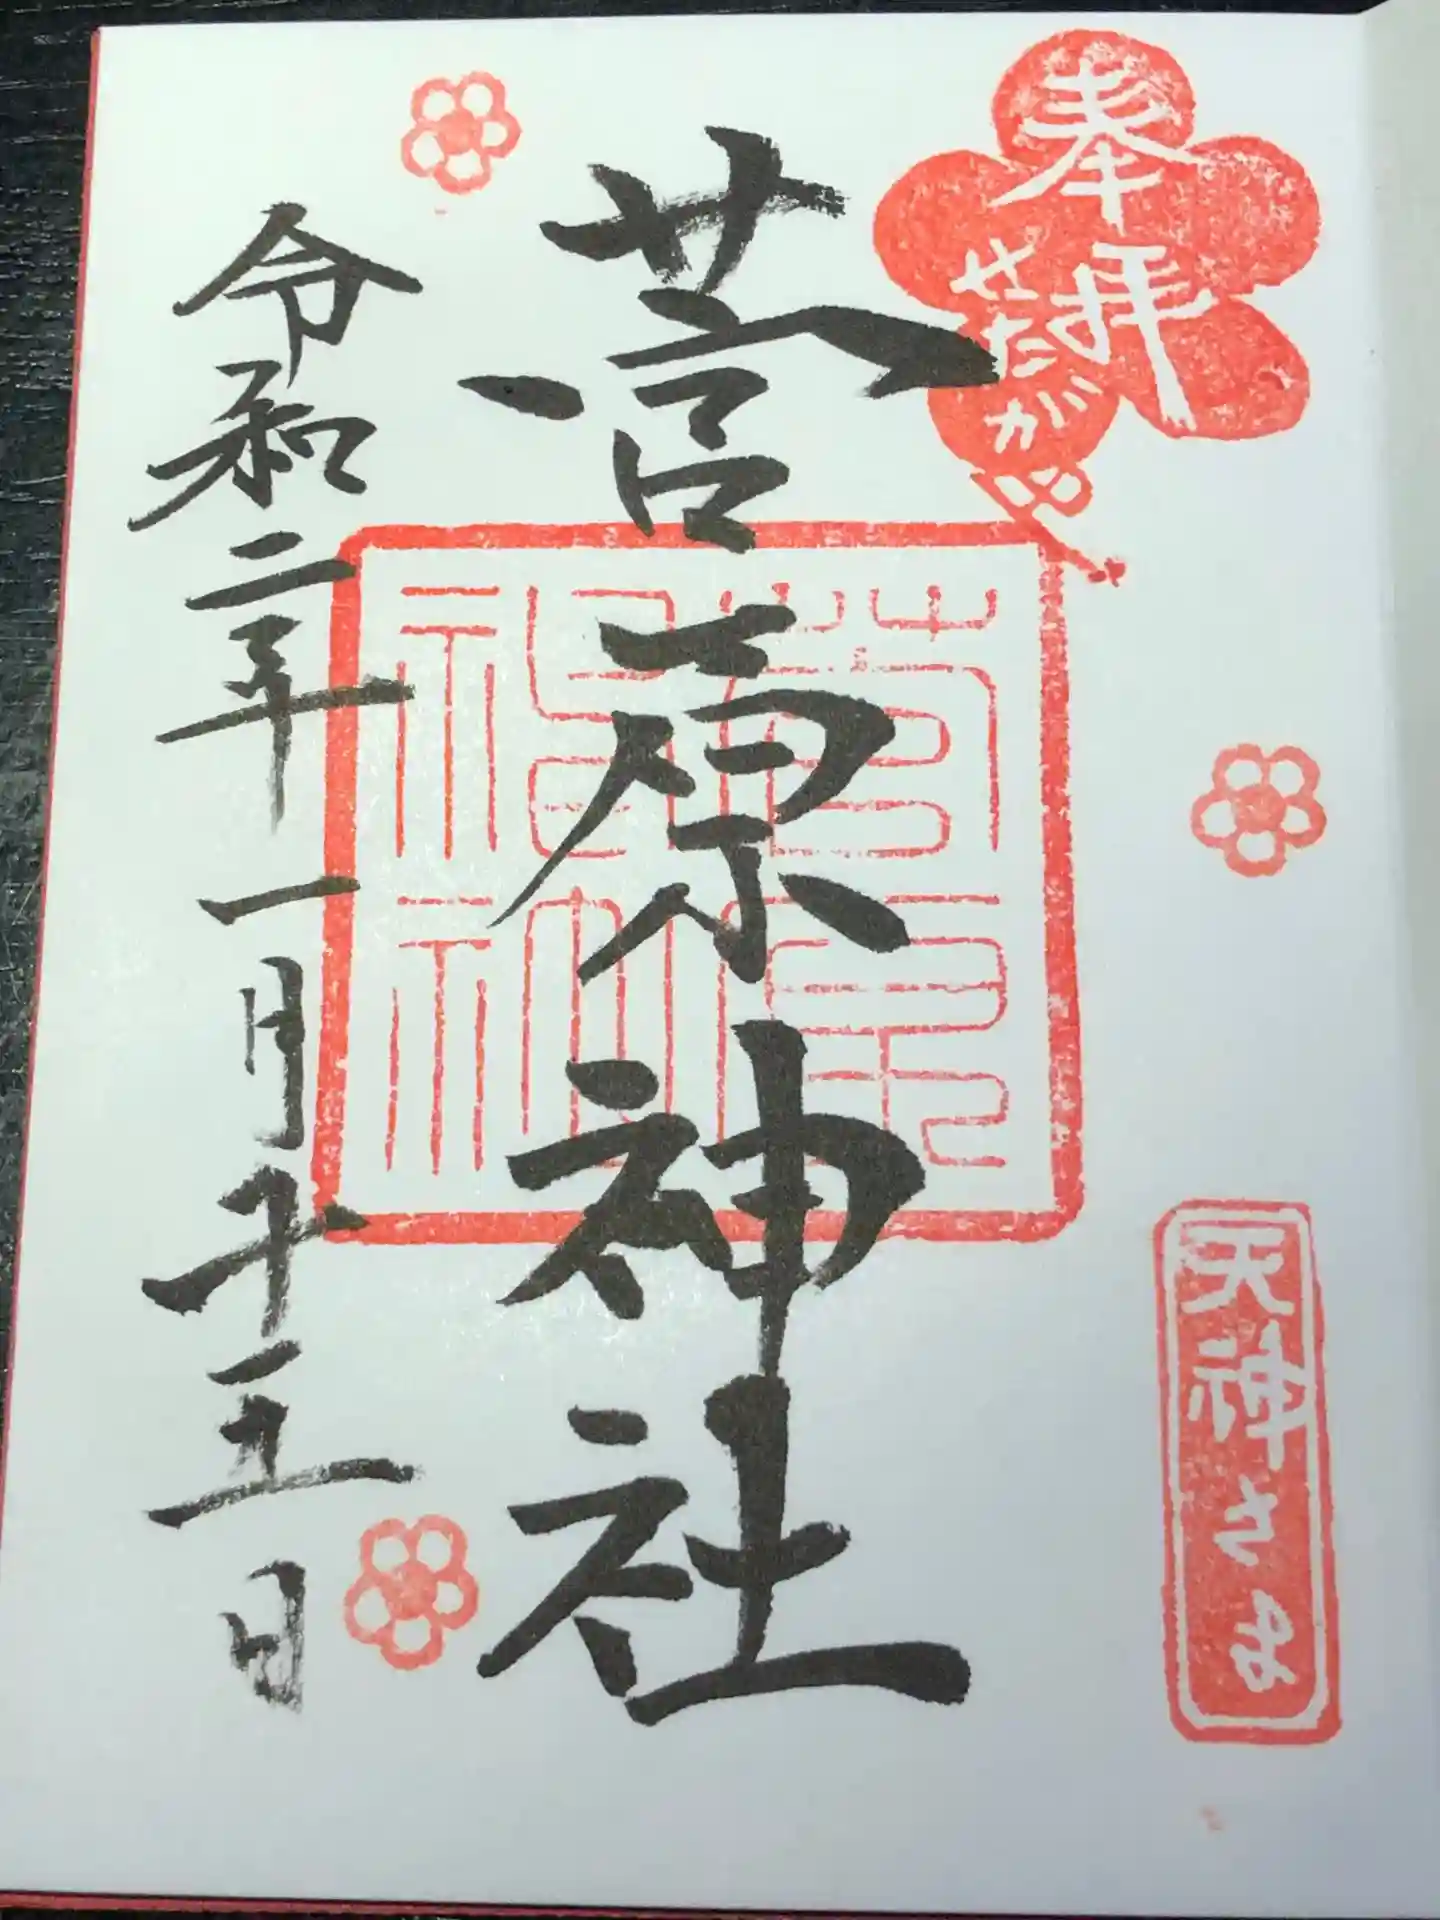 奉拝
せたがや
天神さま
菅原神社
菅原神社
令和二年一月十五日